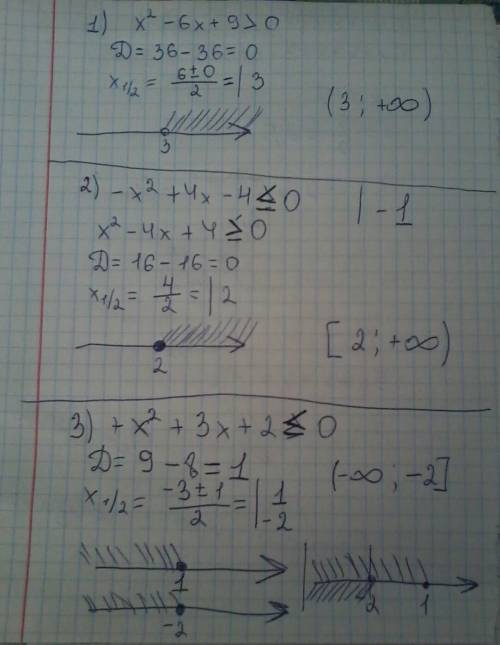 1) x² - 6x + 9 > 0
D = 36 - 36 = 0
x₁/₂ = (6 ± 0)/2 = | 3
(3 ; +∞)
3
2) -x² + 4x - 4 ≤ 0 | -1
x² - 4x + 4 ≥ 0
D = 16 - 16 = 0
x₁/₂ = 4/2 = | 2
[2 ; +∞)
2
3) +x² + 3x + 2 ≤ 0
D = 9 - 8 = 1
(-∞ ; -2]
x₁/₂ = (-3 ± 1)/2 = | 1
-2
1
-2
2 1